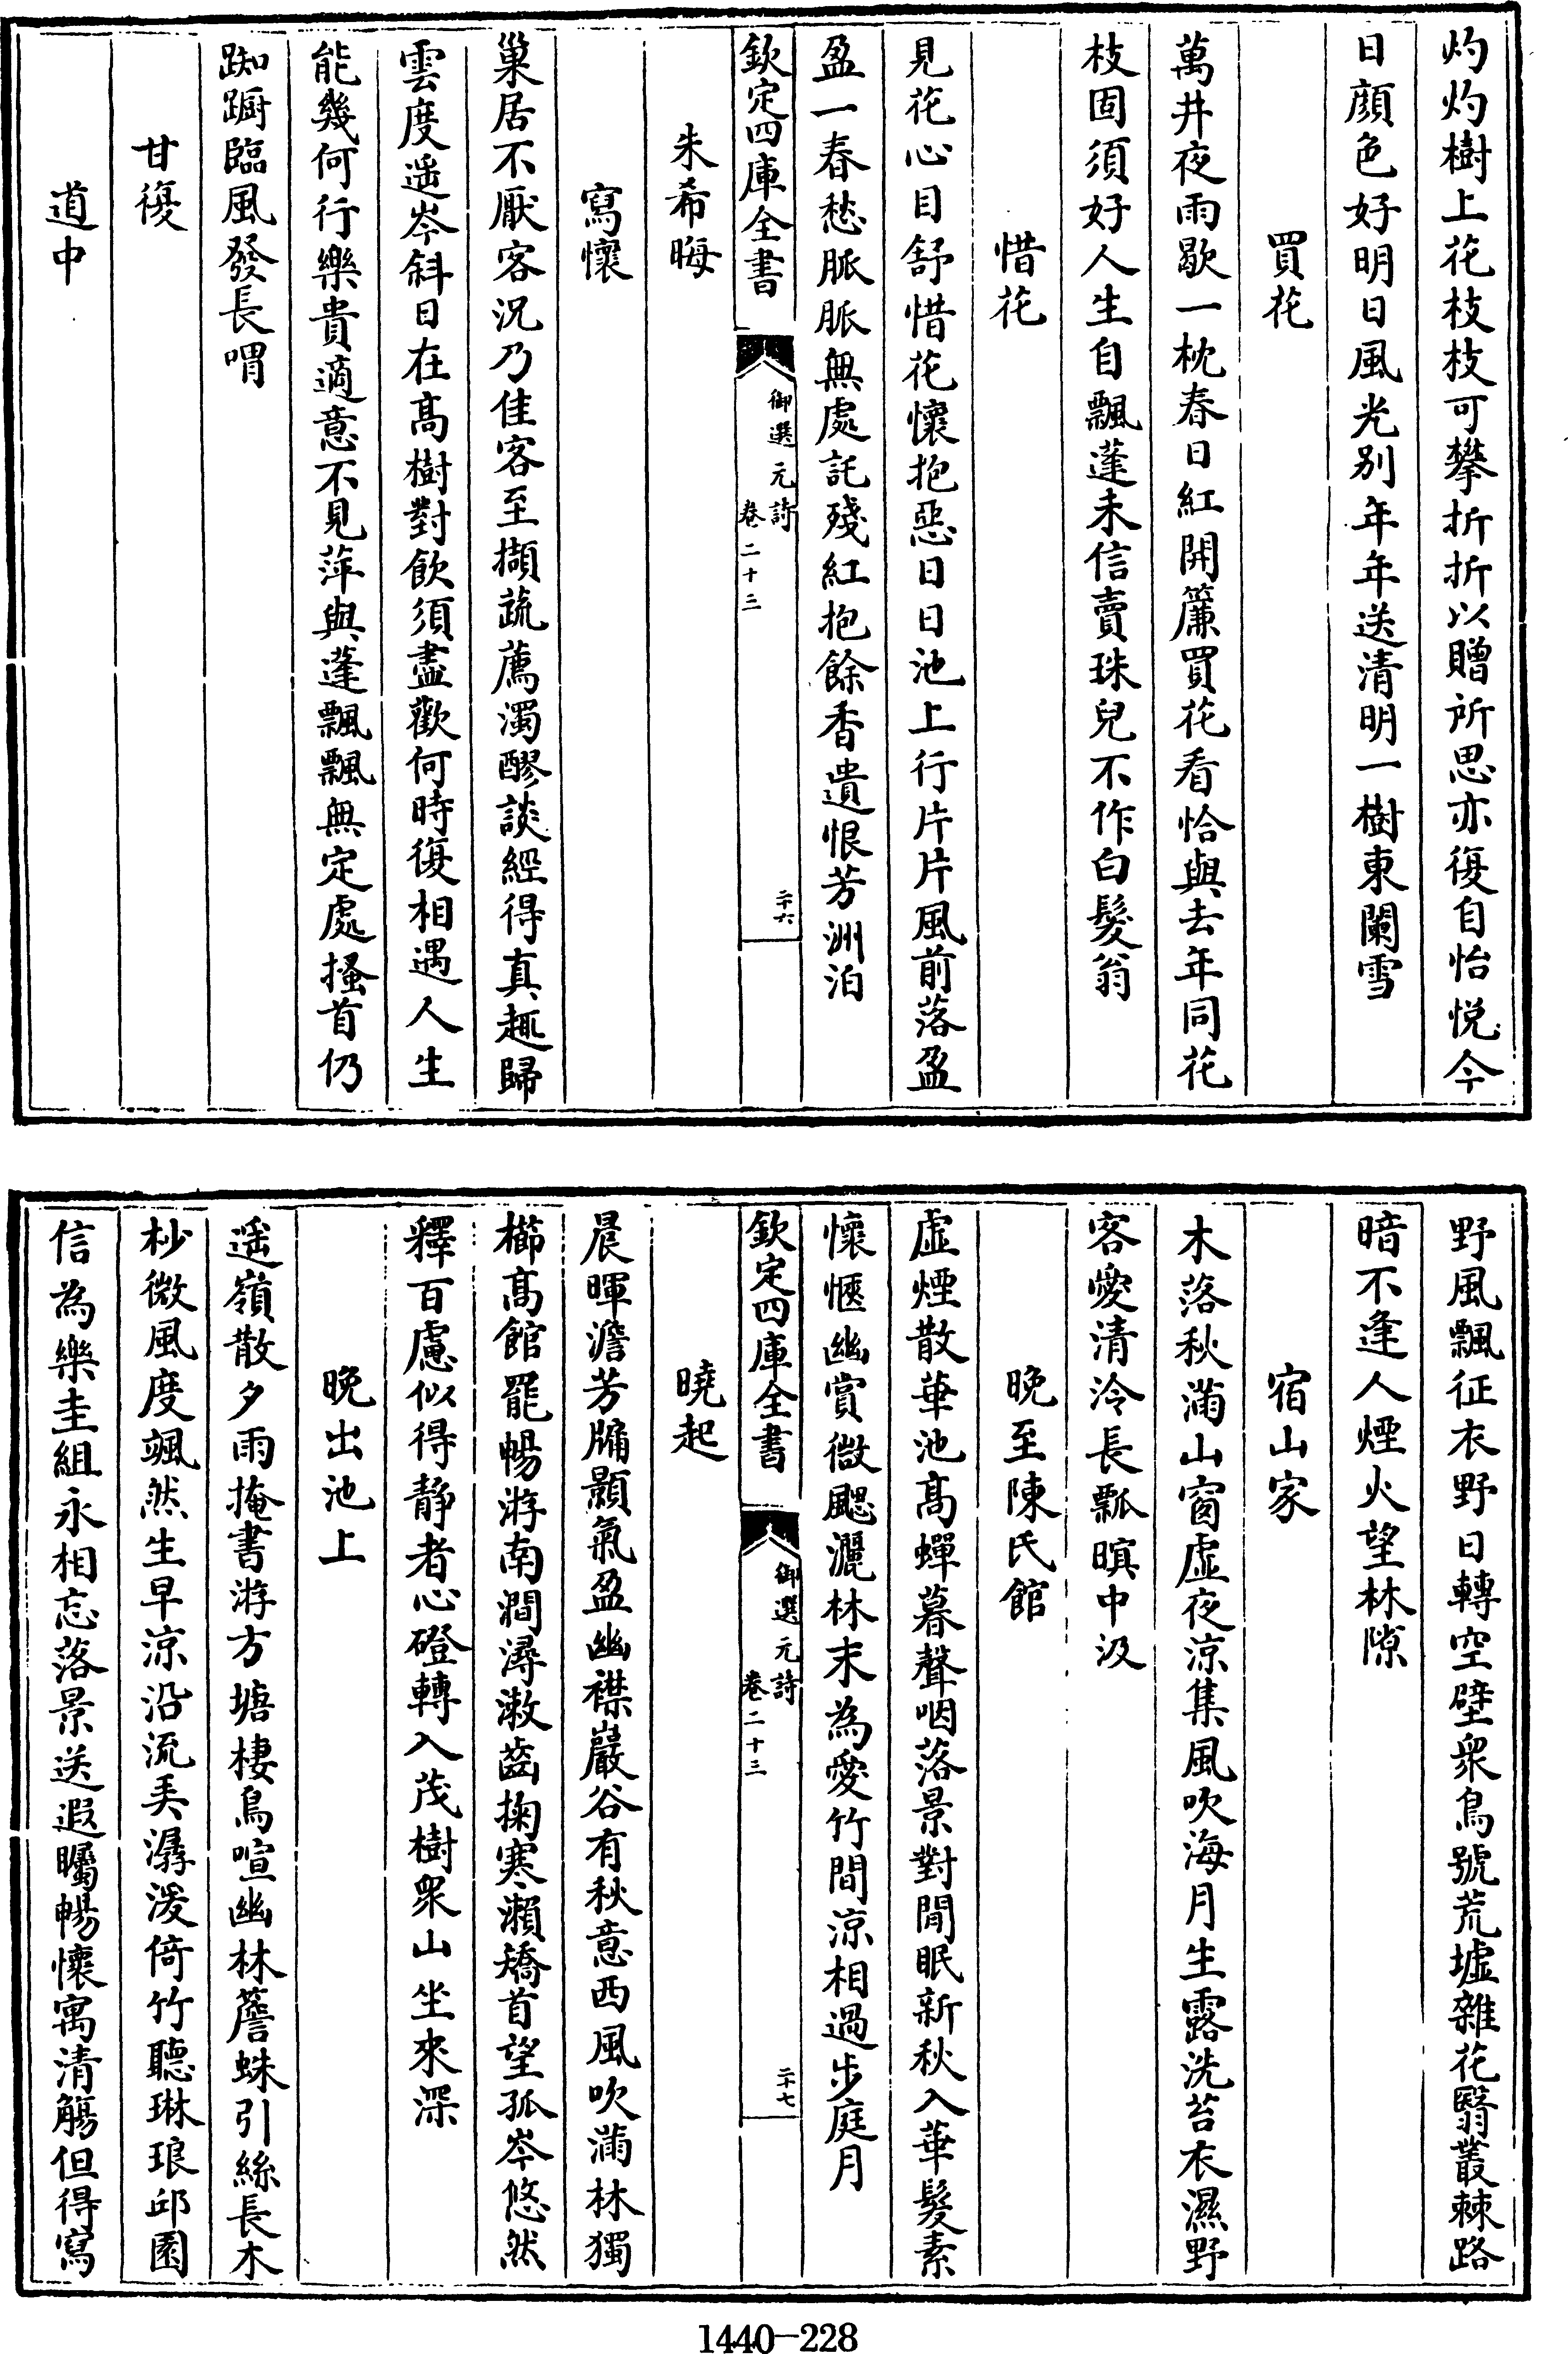 灼灼樹上花枝枝可攀折折以贈所思亦復自怡悅今
日顔色好明日風光别年年送清明一樹東闌雪
買花
萬井夜雨歇一枕春日紅開簾買花看恰與去年同花
枝固須好人生自飄蓬未信賣珠兒不作白髮翁
惜花
見花心目舒惜花懷抱惡日日池上行片片風前落盈
盈一春愁脈脈無處託殘紅抱餘香遺恨芳洲泊
欽定四庫全書
御選元詩
卷二十三
二十六
朱希晦
寫懷
巢居不厭客况乃佳客至擷蔬薦濁醪談經得真趣歸
雲度遥岑斜日在髙樹對飲須盡歡何時復相遇人生
能幾何行樂貴適意不見萍與蓬飄飄無定處搔首仍
踟蹰臨風發長喟
甘復
道中
野風飄征衣野日轉空壁衆鳥號荒墟雜花翳叢棘路
暗不逢人煙火望林隙
宿山家
木落秋滿山窗虚夜凉集風吹海月生露洗苔衣濕野
客愛清泠長瓢暝中汲
晚至陳氏館
虚煙散華池髙蟬暮聲咽落景對閒眠新秋入華髮素
懷愜幽賞微颸灑林末為愛竹間凉相過步庭月
欽定四庫全書
御選元詩
卷二十三
二十七
曉起
晨暉澹芳牖顥氣盈幽襟巖谷有秋意西風吹滿林獨
櫛髙館罷暢游南澗潯漱齒掬寒瀨矯首望孤岑悠然
釋百慮似得静者心磴轉入茂樹衆山坐來深
晚出池上
遥嶺散夕雨掩書游方塘棲鳥喧幽林簷蛛引絲長木
杪微風度颯然生早凉沿流弄潺湲倚竹聽琳琅邱園
信為樂圭組永相忘落景送遐矚暢懷寓清觴但得寫
1440-228